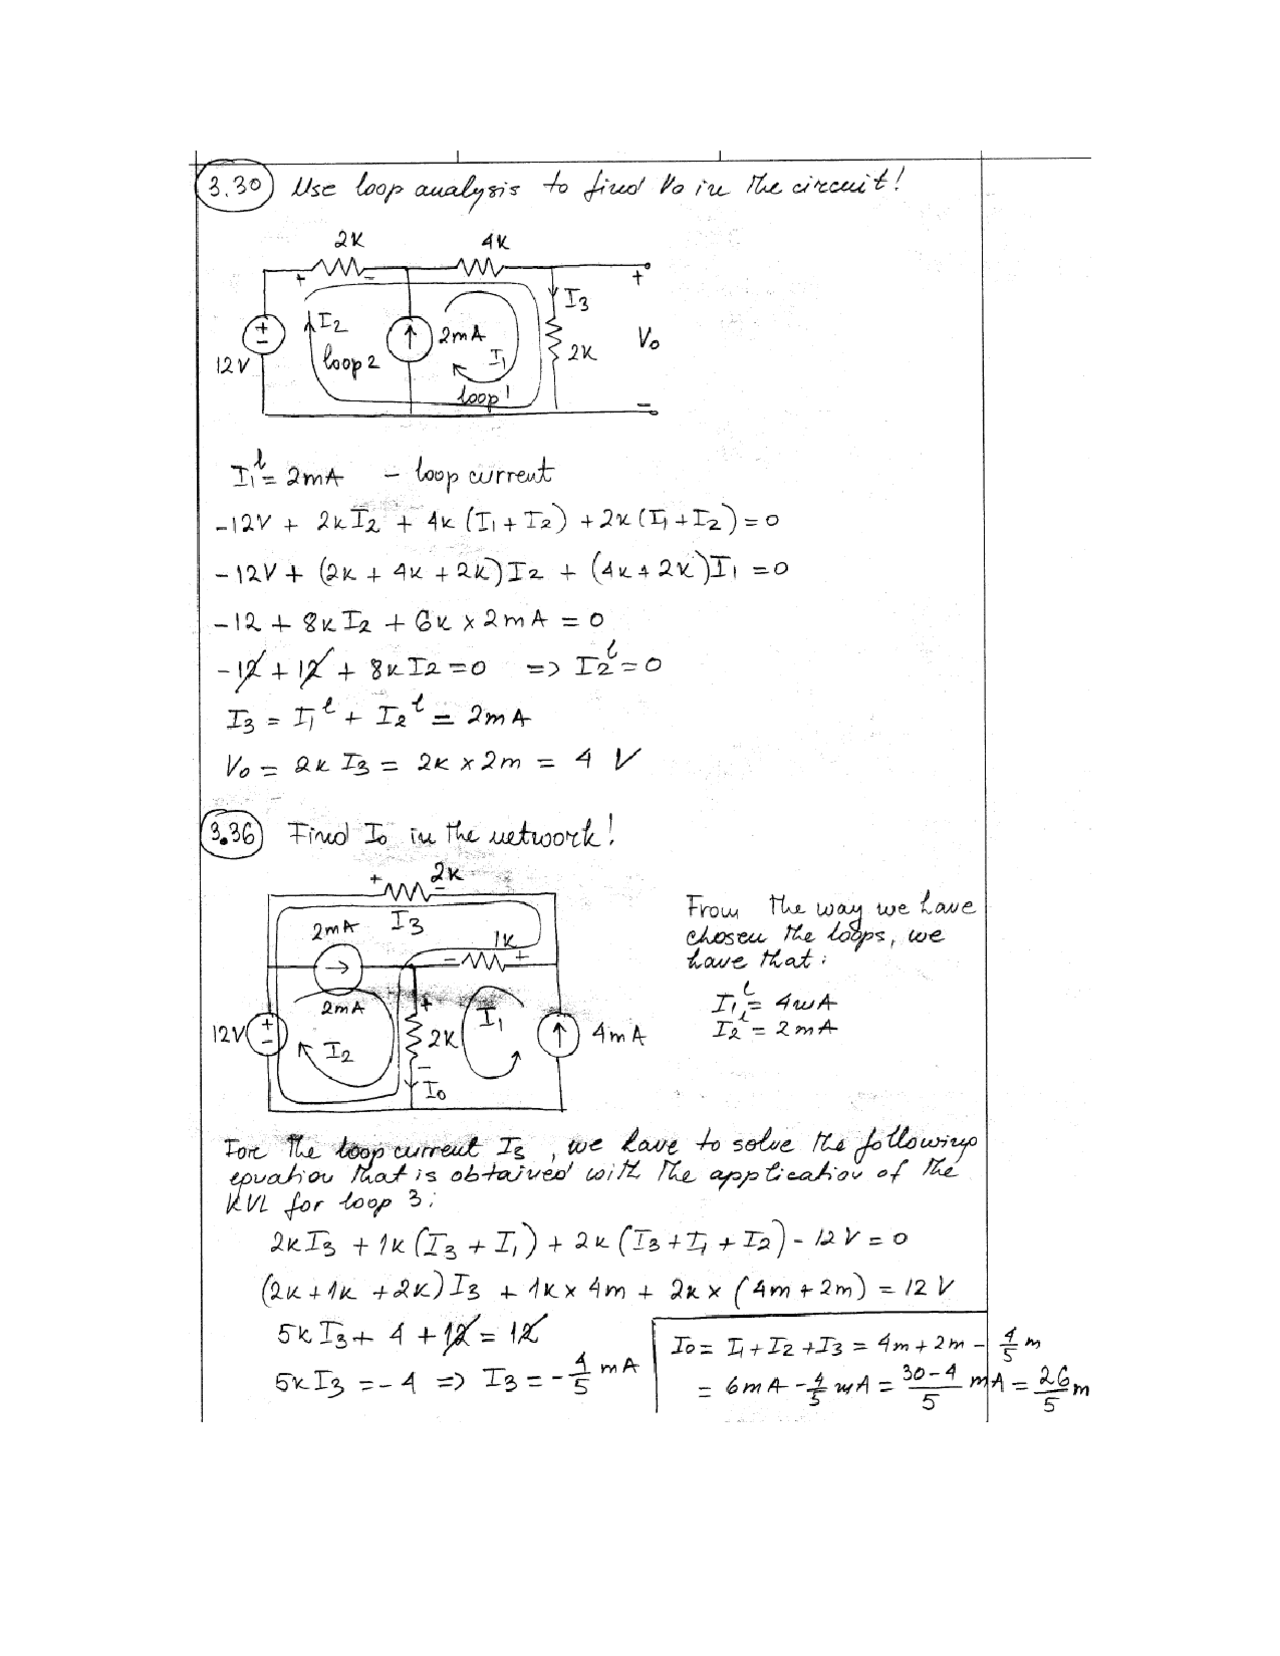 3.30 Use loop analysis to find Vo in the circuit!
2K 4K
+ - +
I3
I2 2mA Vo
+ - I1 2K
12V loop 2
loop 1 -
I1^l = 2mA - loop current
-12V + 2kI2 + 4k (I1 + I2) + 2k (I1 + I2) = 0
-12V + (2k + 4k + 2k) I2 + (4k + 2k) I1 = 0
-12 + 8k I2 + 6k x 2mA = 0
-12 + 12 + 8k I2 = 0 => I2^l = 0
I3 = I1^l + I2^l = 2mA
Vo = 2k I3 = 2k x 2m = 4 V
3.36 Find Io in the network!
+ 2K -
2mA I3
- 1K +
2mA + I1
12V + - I2 2K 4mA
- Io
From the way we have
chosen the loops, we
have that:
I1^l = 4mA
I2^l = 2mA
For the loop current I3, we have to solve the following
equation that is obtained with the application of the
KVL for loop 3:
2kI3 + 1k (I3 + I1) + 2k (I3 + I1 + I2) - 12 V = 0
(2k + 1k + 2k) I3 + 1k x 4m + 2k x (4m + 2m) = 12 V
5k I3 + 4 + 12 = 12
5k I3 = -4 => I3 = - 4/5 mA
Io = I1 + I2 + I3 = 4m + 2m - 4/5 m
= 6mA - 4/5 mA = 30-4/5 mA = 26/5 m